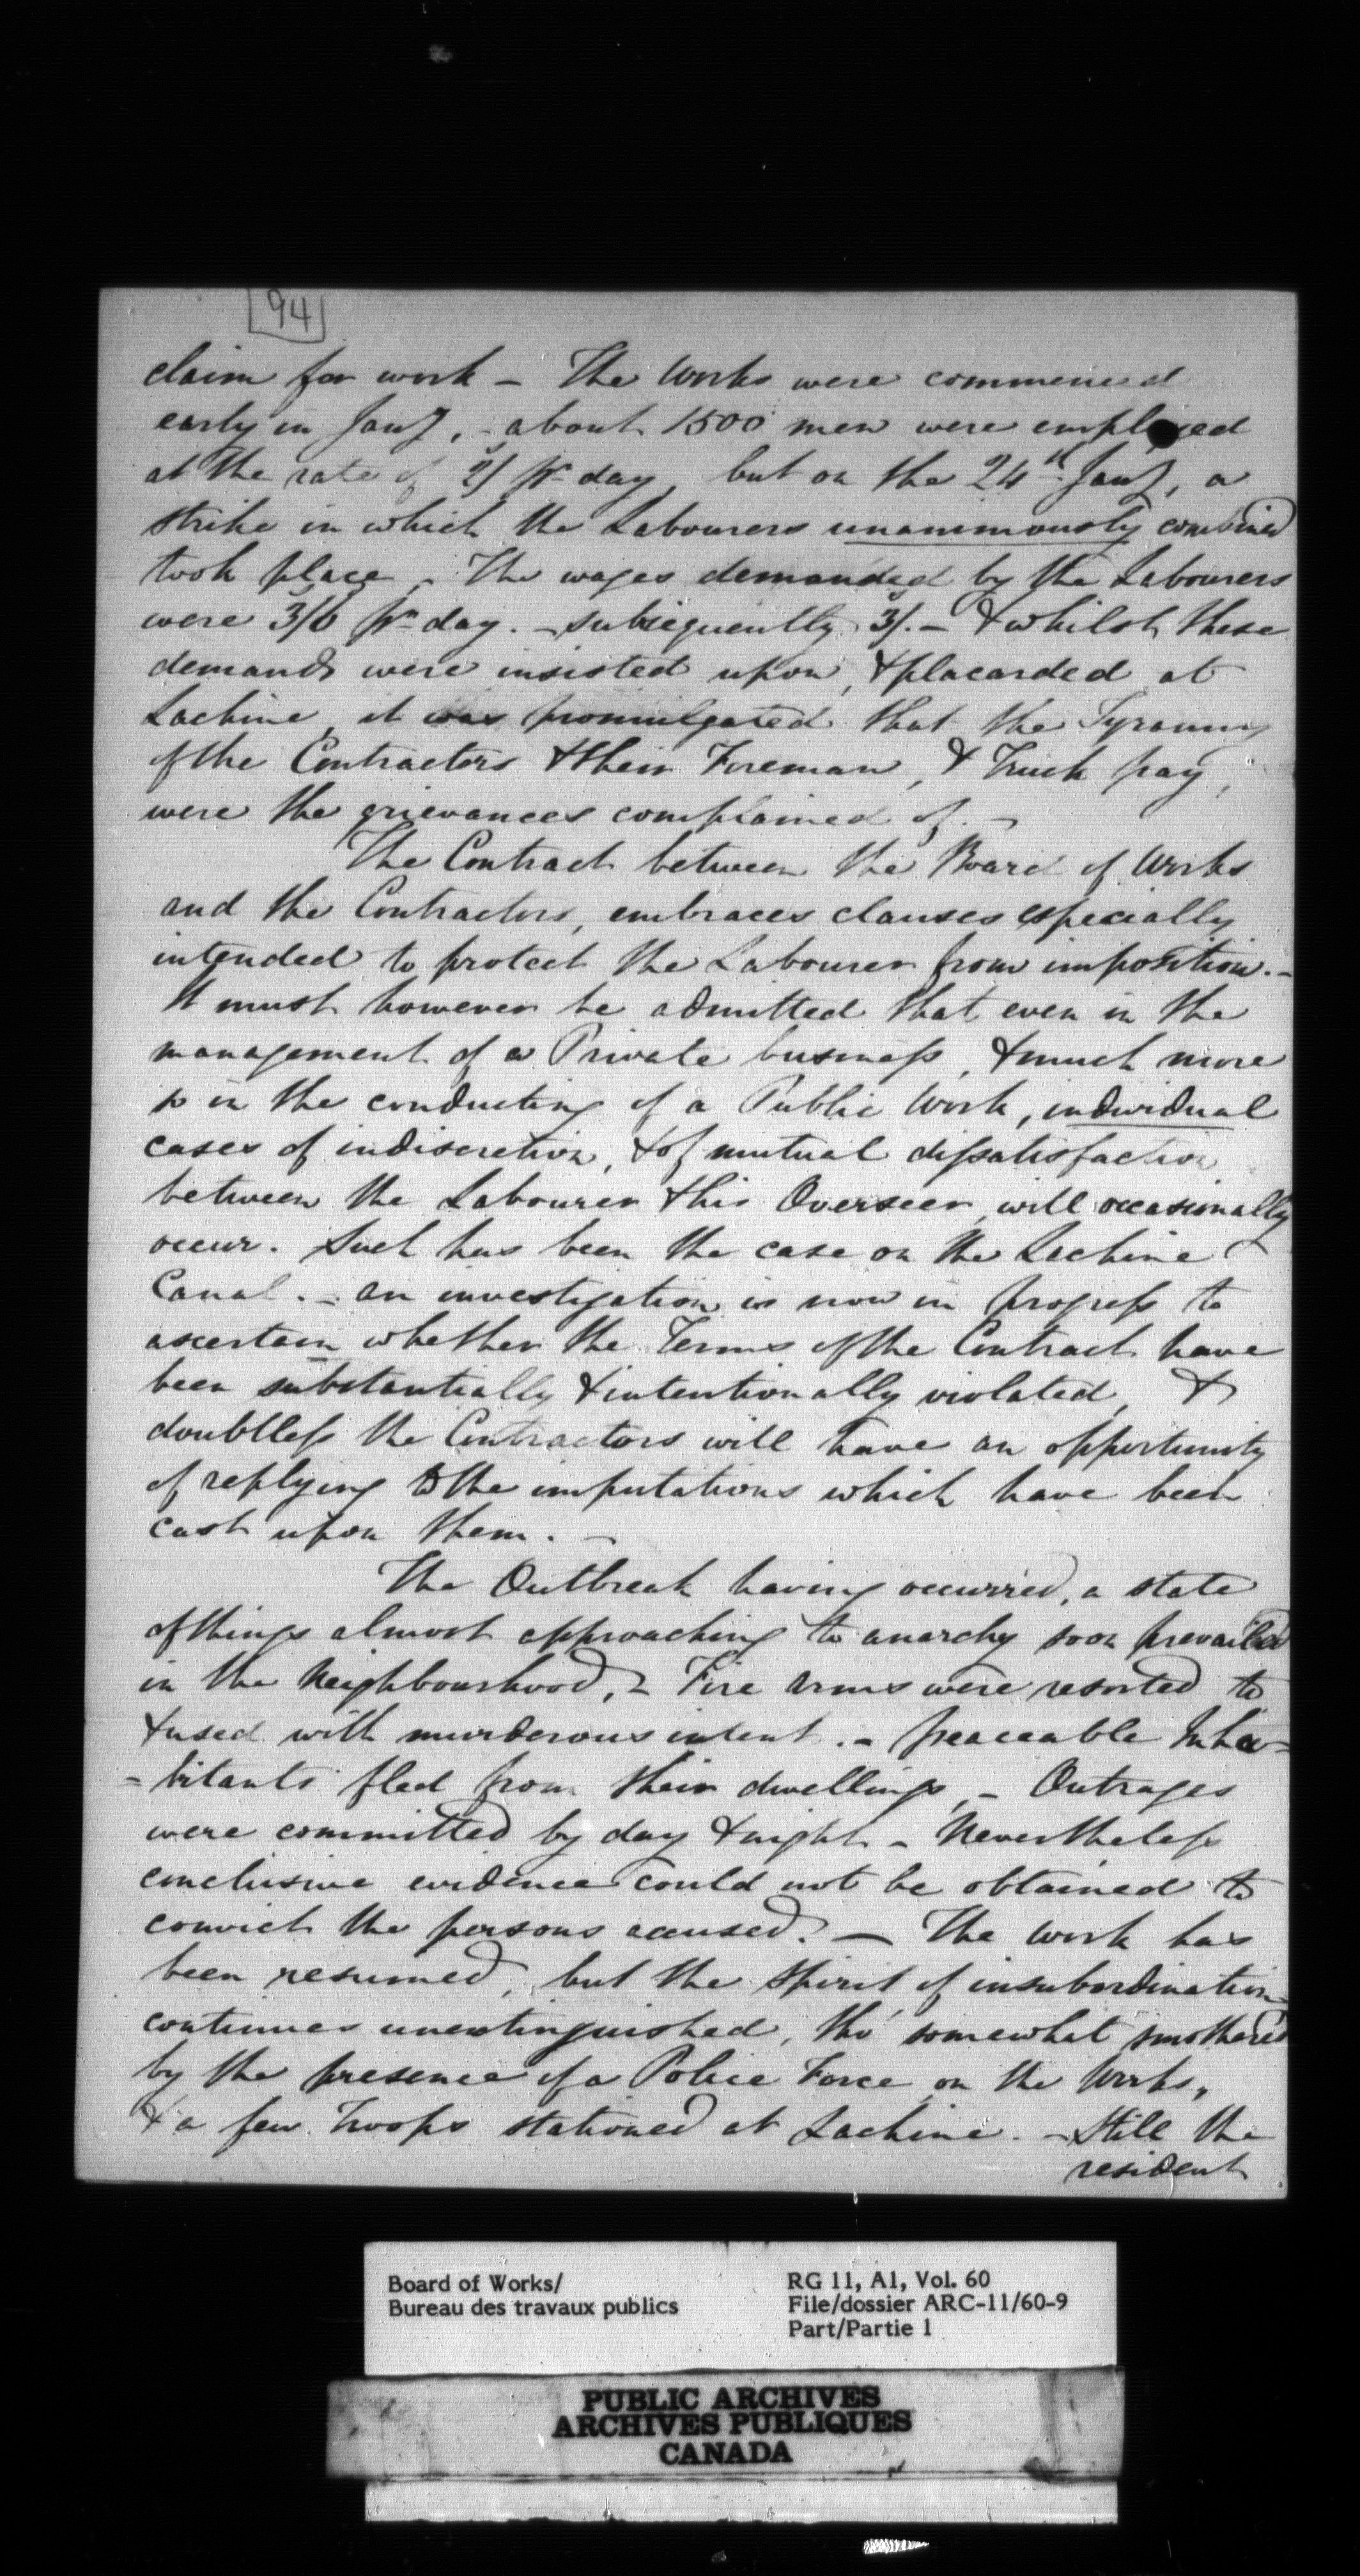 94
claim for work - The Works were commenced
early in Jany, - about 1500 men were employed
at the rate of 2/ pr day, but on the 24th Jany, a
strike in which the Labourers unanimously combined
took place, - The wages demanded by the Labourers
were 3/6 pr day. - subsequently 3/. - & whilst these
demands were insisted upon, & placarded at
Lachine, it was promulgated that the Tyranny
of the Contractors & their Foreman, & Truck pay,
were the grievances complained of. -
The Contract between the Board of Works
and the Contractors, embraces clauses especially
intended to protect the Labourer from imposition. -
It must however be admitted that even in the
management of a Private business, & much more
so in the conducting of a Public Work, individual
cases of indiscretion, & of mutual dissatisfaction
between the Labourer & his Overseer, will occasionally
occur. Such has been the case on the Lachine
Canal. - an investigation is now in progress to
ascertain whether the Terms of the Contract have
been substantially & intentionally violated, &
doubtless the Contractors will have an opportunity
of replying to the imputations which have been
cast upon them. -
The Outbreak having occurred, a state
of things almost approaching to anarchy soon prevailed
in the Neighbourhood, - Fire Arms were resorted to
& used with murderous intent. - peaceable Inha-
-bitants fled from their dwellings, - Outrages
were committed by day & night - Nevertheless
conclusive evidence could not be obtained to
convict the persons accused. - The Work has
been resumed, but the spirit of insubordination
continues unextinguished, tho' somewhat smothered
by the presence of a Police Force on the Works,
& a few Troops stationed at Lachine. - Still the
resident
Board of Works/
Bureau des travaux publics
RG 11, A1, Vol. 60
File/dossier ARC-11/60-9
Part/Partie 1
PUBLIC ARCHIVES
ARCHIVES PUBLIQUES
CANADA